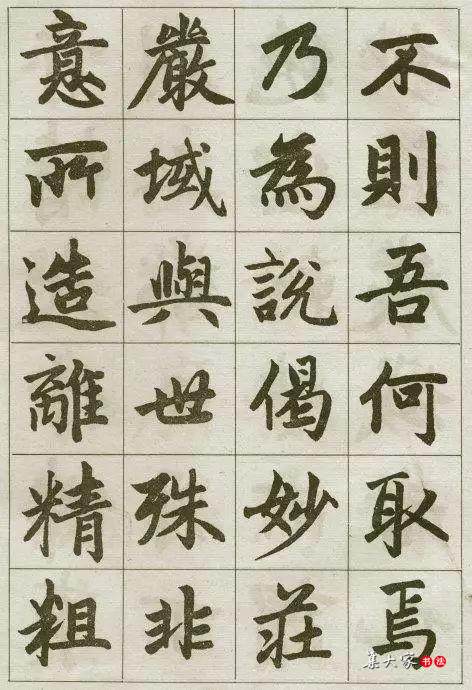 不則吾何取焉
乃為說偈妙莊
嚴域與世殊非
意所造離精粗
集大家书法